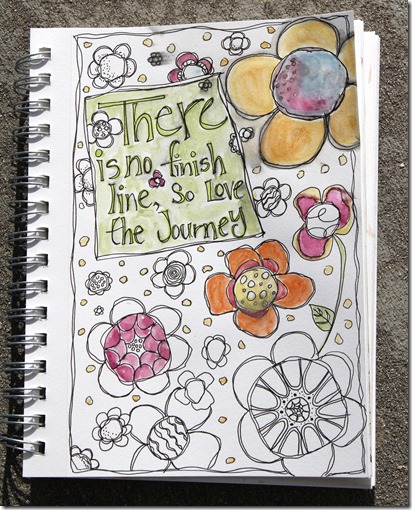 There
is no finish
line, So Love
the Journey